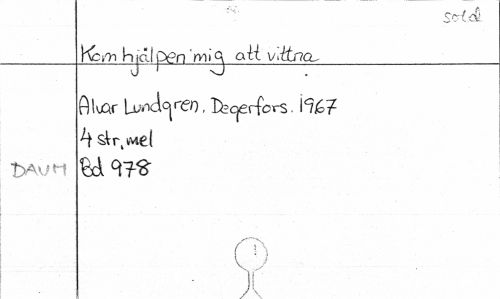 sold
Kom hjälpen mig att vittna
Alvar Lundgren. Degerfors. 1967
4 str, mel
DAUM Bd 978